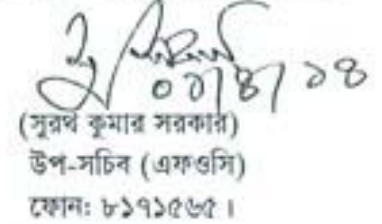 ০১/৪/১৪
(সুরথ কুমার সরকার)
উপ-সচিব (এফওসি)
ফোন: ৮১৭১৫৬৫।